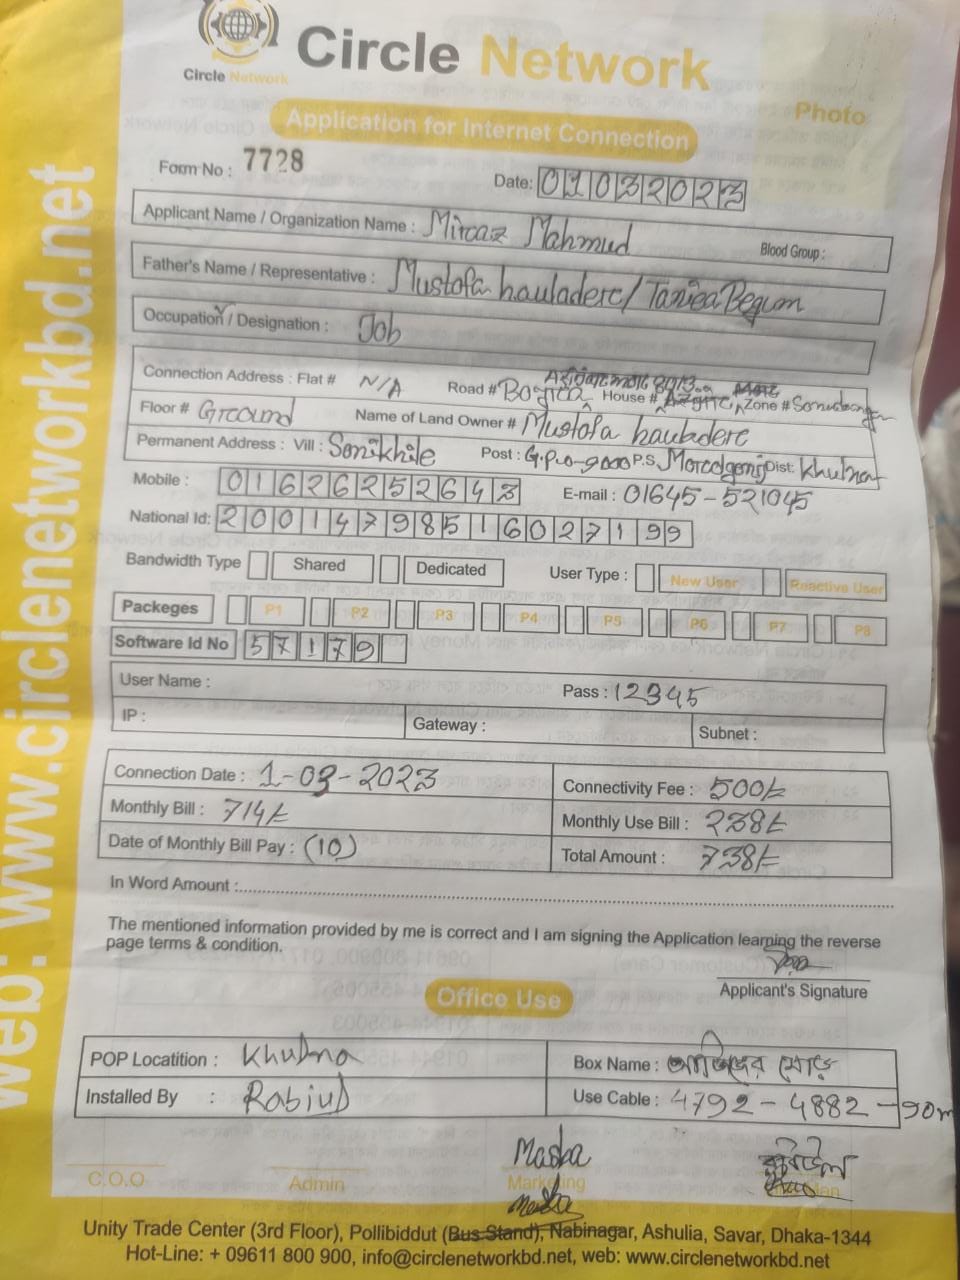 Circle Network
Circle Network
Photo
Application for Internet Connection
Form No : 7728
Date: 01032023
Applicant Name / Organization Name : Mircaz Mahmud Blood Group :
Father's Name / Representative : Mustofa hauladerc/ Taniea Begum
Occupation / Designation : Job
Connection Address : Flat # N/A Road # House # Zone #
Floor # Ground Name of Land Owner # Mustofa hauladerc
Permanent Address : Vill : Sonikhile Post : G.p.o-9000 P.S, Dist: Khulna
Mobile : 01626252643 E-mail : 01645-521045
National Id: 20014798516027199
Bandwidth Type Shared Dedicated User Type : New User Reactive User
Packeges P1 P2 P3 P4 P5 P6 P7 P8
Software Id No 57179
User Name : Pass : 12345
IP : Gateway : Subnet :
Connection Date : 1-03-2023 Connectivity Fee : 500/=
Monthly Bill : 714/= Monthly Use Bill : 238/=
Date of Monthly Bill Pay : (10) Total Amount : 738/=
In Word Amount :
The mentioned information provided by me is correct and I am signing the Application learning the reverse
page terms & condition.
Applicant's Signature
Office Use
POP Locatition : Khulna Box Name : মোড়
Installed By : Rabiul Use Cable : 4792 - 4882 - 90m
Masha
C.O.O Admin Marketing
Unity Trade Center (3rd Floor), Pollibiddut (Bus Stand), Nabinagar, Ashulia, Savar, Dhaka-1344
Hot-Line: + 09611 800 900, info@circlenetworkbd.net, web: www.circlenetworkbd.net
web: www.circlenetworkbd.net